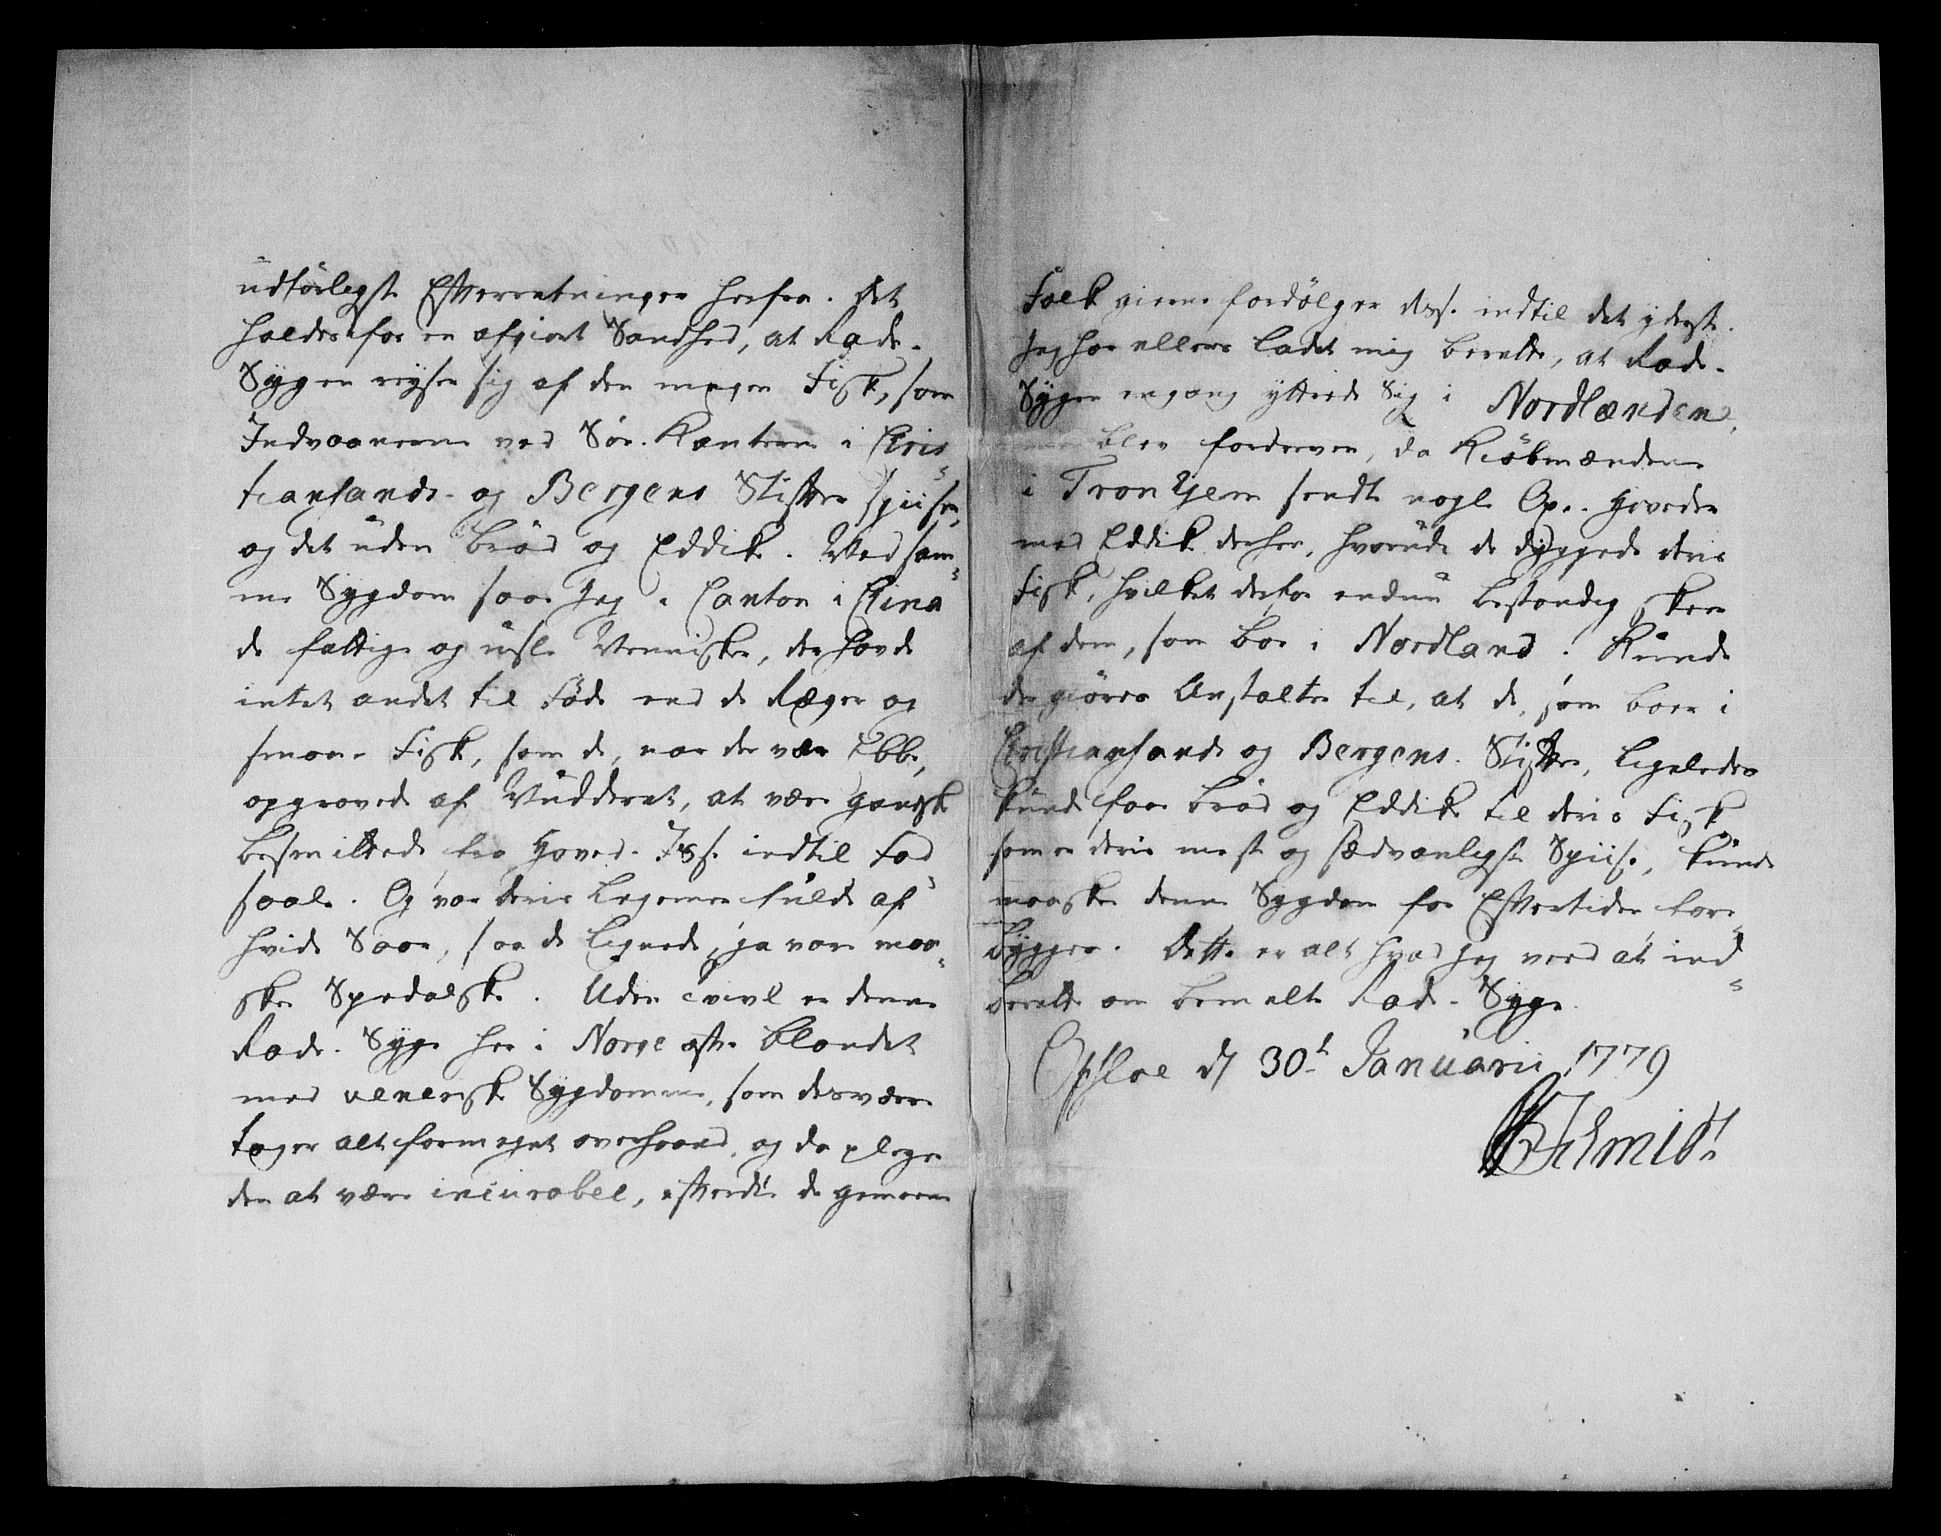 udförligste Efterretninger herfra. Det
holdes for en afgiort Sandhed, at Rade-
Sygen reyser sig af den megen Fisk, som
Indvaanerne ved Söe-Kanterne i Chris-
tiansands- og Bergens Stifter spiiser,
og det uden Bröd og Eddik. Ved sam-
me Sygdom saae Jeg i Canton i China
de fattige og usle Mennisker, der havde
intet andet til Föde end de Ræger og
smaae Fisk, som de, naar der var Ebbe,
opgravede af Mudderet, at være gandske
besmittede fra Hoved-Isse indtil Fod-
saale. Og var deris Legemer fulde af
hvide Saar, saa de lignede, ja vare maa-
skee Spedalske. Uden tvivl er denne
Rade-Syge her i Norge ofte blandet
med venerisk Sygdomme, som desværre
tager alt formeget overhaand, og da pleyer
den at være incurabel, efterdi de gemeene
Folk gierne fordölger dem indtil det yderste.
Jeg har ellers ladet mig berette, at Rade-
Sygen engang yttrede sig i Nordlanden,
men blev fordreven, da Kiöbmændene
i Tronhiem sendte nogle Oxe-Hoveder
med Eddik derhen, hvorudi de dyppede deris
Fisk, hvilket derfor endnu bestandig skeer
af dem, som boe i Nordland. Kunde
der giöres Anstalter til, at de, som boer i
Christiansands og Bergens Stifter, ligeledes
kunde faae Bröd og Eddik til deris Fisk
som er deris meste og sædvanligste Spiise, kunde
maaskee denne Sygdom for Eftertiden fore-
bygges. Dette er alt hvad Jeg veed at ind-
berette om bemelte Rade-Syge.
Opsloe d 30t Januarii 1779
Schmidt